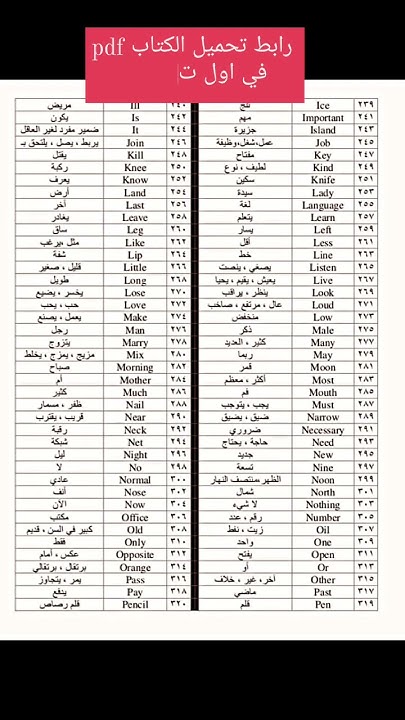 رابط تحميل الكتاب pdf
في اول ت
٢٣٩ Ice ثلج ٢٤٠ Ill مريض
٢٤١ Important مهم ٢٤٢ Is يكون
٢٤٣ Island جزيرة ٢٤٤ It ضمير مفرد لغير العاقل
٢٤٥ Job عمل،شغل،وظيفة ٢٤٦ Join يربط ، يصل ، يلتحق بـ
٢٤٧ Key مفتاح ٢٤٨ Kill يقتل
٢٤٩ Kind لطيف ، نوع ٢٥٠ Knee ركبة
٢٥١ Knife سكين ٢٥٢ Know يعرف
٢٥٣ Lady سيدة ٢٥٤ Land أرض
٢٥٥ Language لغة ٢٥٦ Last أخر
٢٥٧ Learn يتعلم ٢٥٨ Leave يغادر
٢٥٩ Left يسار ٢٦٠ Leg ساق
٢٦١ Less أقل ٢٦٢ Like مثل ،يرغب
٢٦٣ Line خط ٢٦٤ Lip شفة
٢٦٥ Listen يصغي ، ينصت ٢٦٦ Little قليل ، صغير
٢٦٧ Live يعيش ، يقيم ، يحيا ٢٦٨ Long طويل
٢٦٩ Look ينظر ، يراقب ٢٧٠ Lose يخسر ، يضيع
٢٧١ Loud عال ، مرتفع ، صاخب ٢٧٢ Love حب ، يحب
٢٧٣ Low منخفض ٢٧٤ Make يعمل ، يصنع
٢٧٥ Male ذكر ٢٧٦ Man رجل
٢٧٧ Many كثير ، العديد ٢٧٨ Marry يتزوج
٢٧٩ May ربما ٢٨٠ Mix مزيج ، يمزج ، يخلط
٢٨١ Moon قمر ٢٨٢ Morning صباح
٢٨٣ Most أكثر ، معظم ٢٨٤ Mother أم
٢٨٥ Mouth فم ٢٨٦ Much كثير
٢٨٧ Must يجب ، يتوجب ٢٨٨ Nail ظفر ، مسمار
٢٨٩ Narrow ضيق ، يضيق ٢٩٠ Near قريب ، يقترب
٢٩١ Necessary ضروري ٢٩٢ Neck رقبة
٢٩٣ Need حاجة ، يحتاج ٢٩٤ Net شبكة
٢٩٥ New جديد ٢٩٦ Night ليل
٢٩٧ Nine تسعة ٢٩٨ No لا
٢٩٩ Noon الظهر،منتصف النهار ٣٠٠ Normal عادي
٣٠١ North شمال ٣٠٢ Nose أنف
٣٠٣ Nothing لا شيء ٣٠٤ Now الآن
٣٠٥ Number رقم ، عدد ٣٠٦ Office مكتب
٣٠٧ Oil زيت ، نفط ٣٠٨ Old كبير في السن ، قديم
٣٠٩ One واحد ٣١٠ Only فقط
٣١١ Open يفتح ٣١٢ Opposite عكس ، أمام
٣١٣ Or أو ٣١٤ Orange برتقال ، برتقالي
٣١٥ Other أخر، غير ، خلاف ٣١٦ Pass يمر ، يتجاوز
٣١٧ Past ماضي ٣١٨ Pay يدفع
٣١٩ Pen قلم ٣٢٠ Pencil قلم رصاص